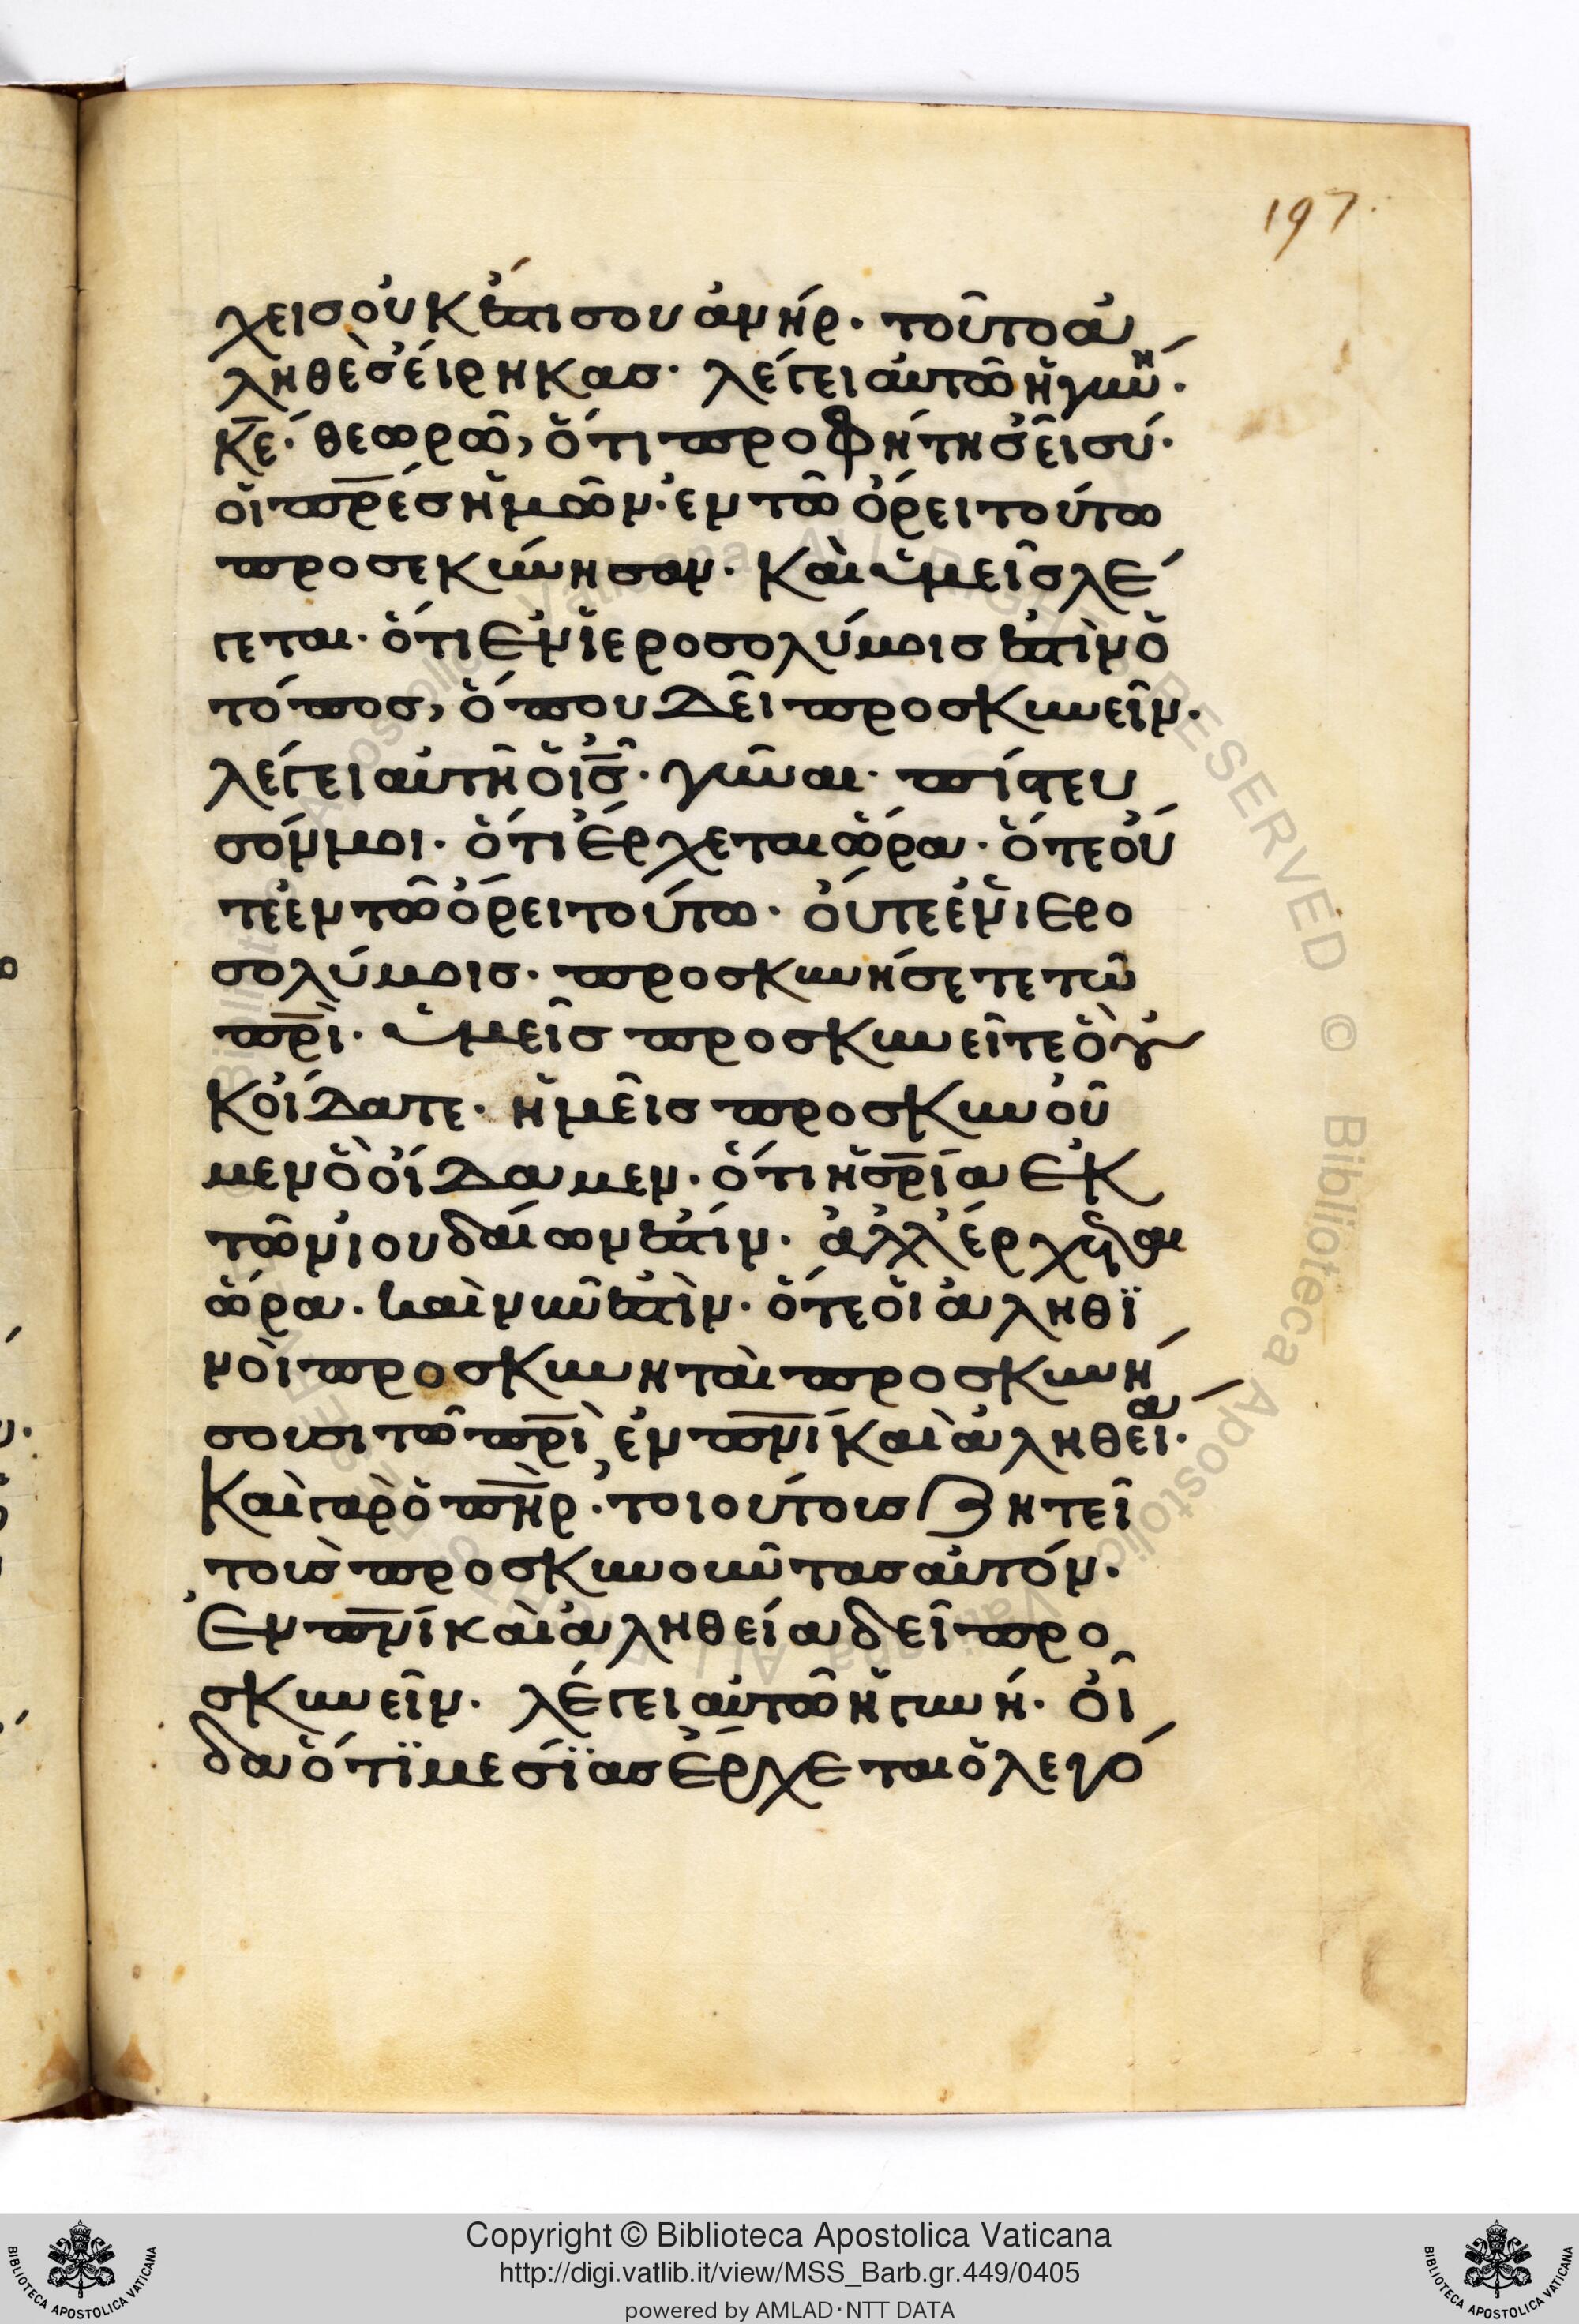 197.
χεις οὐκ ἔστι σου ἀνήρ· τοῦτο ἀ
ληθὲς εἴρηκας· λέγει αὐτῶ ἡ γυνή·
κ̅ε̅· θεωρῶ, ὅτι προφήτης εἶ σύ·
οἱ π̅ρ̅ε̅ς ἡμῶν· ἐν τῶ ὄρει τούτω
προσεκύνησαν· καὶ ὑμεῖς λέ
γεται· ὅτι ἐν ἱεροσολύμοις ἐστὶν ὁ
τόπος, ὅπου δεῖ προσκυνεῖν·
λέγει αὐτῆ ὁ ι̅ς̅· γῦναι· πίστευ
σόν μοι· ὅτι ἔρχεται ὥρα· ὅτε οὔ
τε ἐν τῶ ὄρει τούτω· οὔτε ἐν ἱερο
σολύμοις· προσκυνήσετε τῶ
π̅ρ̅ι̅· ὑμεῖς προσκυνεῖτε ὃ οὐ
κ οἴδατε· ἡμεῖς προσκυνοῦ
μεν ὃ οἴδαμεν· ὅτι ἡ σ̅ρ̅ία ἐκ
τῶν ἰουδαίων ἐστίν· ἀλλ' ἔρχεται
ὥρα· καὶ νῦν ἐστὶν· ὅτε οἱ ἀληθϊ
νοὶ προσκυνηταὶ προσκυνή
σουσι τῶ π̅ρ̅ι̅ ἐν π̅ν̅ι̅ καὶ ἀληθεία·
καὶ γὰρ ὁ π̅η̅ρ̅· τοιούτους ζητεῖ
τοὺς προσκυνοῦντας αὐτόν·
ἐν π̅ν̅ι̅ καὶ ἀληθεία δεῖ προ
σκυνεῖν· λέγει αὐτῶ ἡ γυνή· οἶ
δα ὅτϊ μεσίϊας ἔρχεται ὁ λεγό
Copyright © Biblioteca Apostolica Vaticana
http://digi.vatlib.it/view/MSS_Barb.gr.449/0405
powered by AMLAD·NTT DATA
BIBLIOTECA APOSTOLICA VATICANA
BIBLIOTECA APOSTOLICA VATICANA